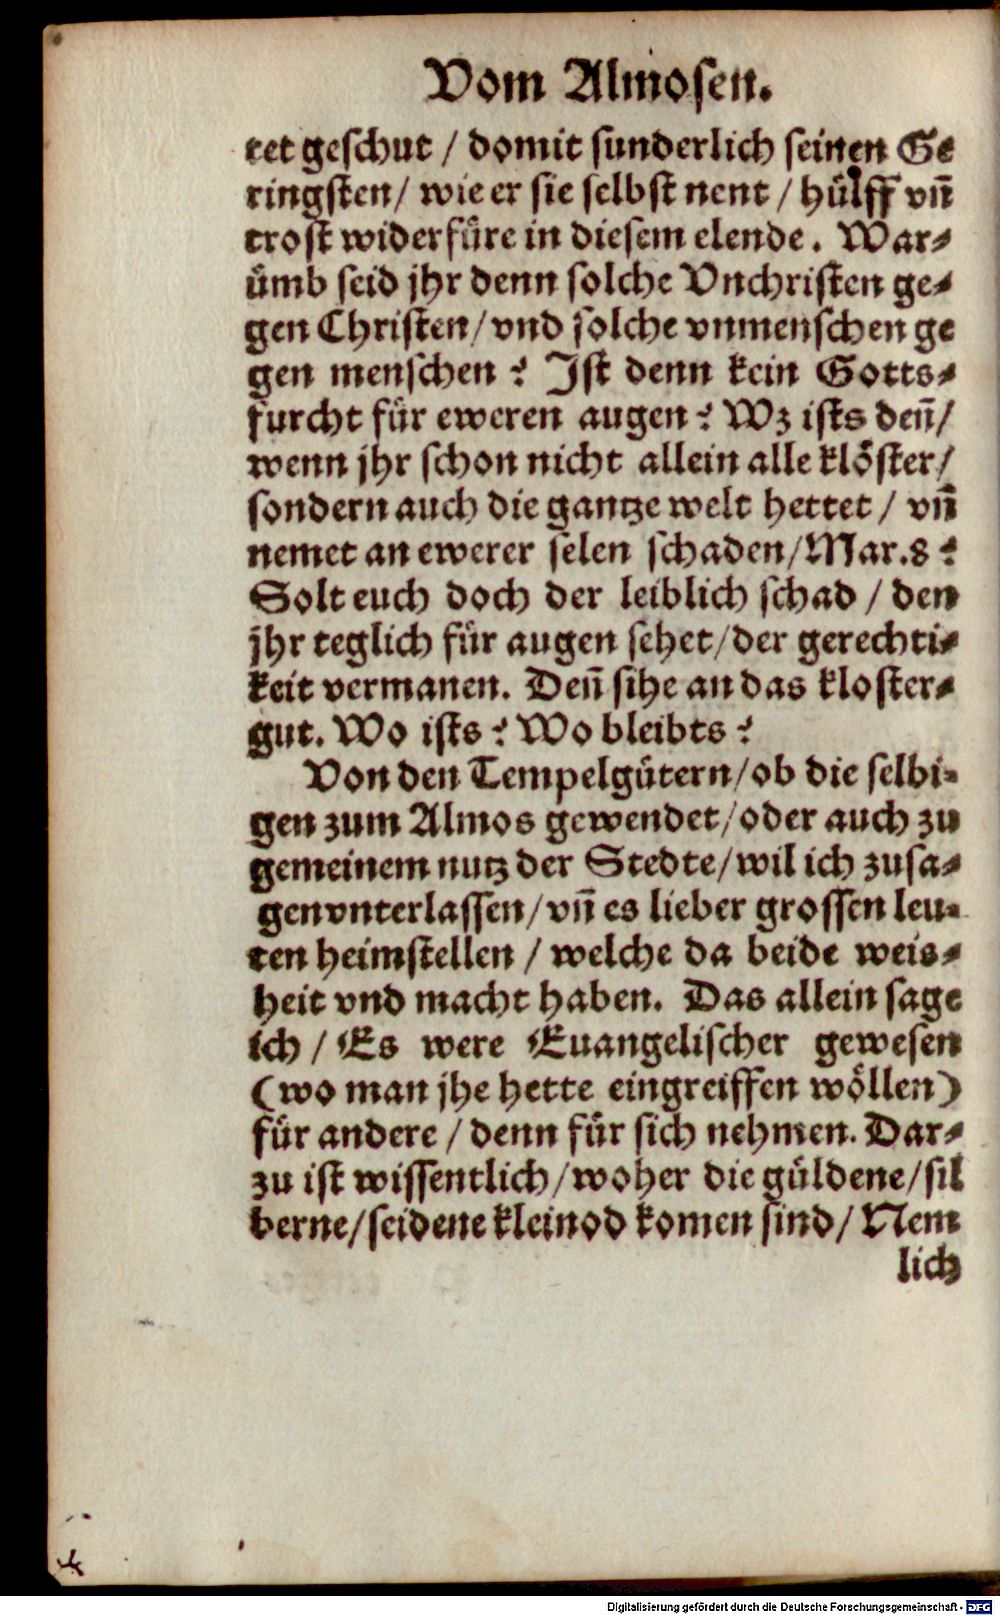 Vom Almosen.
tet geschut / domit sunderlich seinen Ge
ringsten / wie er sie selbst nent / hülff vñ
trost widerfüre in diesem elende. War⸗
ümb seid jhr denn solche Vnchristen ge⸗
gen Christen / vnd solche vnmenschen ge
gen menschen? Ist denn kein Gotts⸗
furcht für eweren augen? Wz ists deñ /
wenn jhr schon nicht allein alle klöster /
sondern auch die gantze welt hettet / vñ
nemet an ewerer selen schaden / Mar.8?
Solt euch doch der leiblich schad / den
jhr teglich für augen sehet / der gerechti⸗
keit vermanen. Deñ sihe an das kloster⸗
gut. Wo ists? Wo bleibts?
Von den Tempelgütern / ob die selbi⸗
gen zum Almos gewendet / oder auch zu
gemeinem nutz der Stedte / wil ich zusa⸗
gen vnterlassen / vñ es lieber grossen leu⸗
ten heimstellen / welche da beide weis⸗
heit vnd macht haben. Das allein sage
ich / Es were Euangelischer gewesen
(wo man jhe hette eingreiffen wöllen)
für andere / denn für sich nehmen. Dar⸗
zu ist wissentlich / woher die güldene / sil
berne / seidene kleinod komen sind / Nem
lich
Digitalisierung gefördert durch die Deutsche Forschungsgemeinschaft - DFG